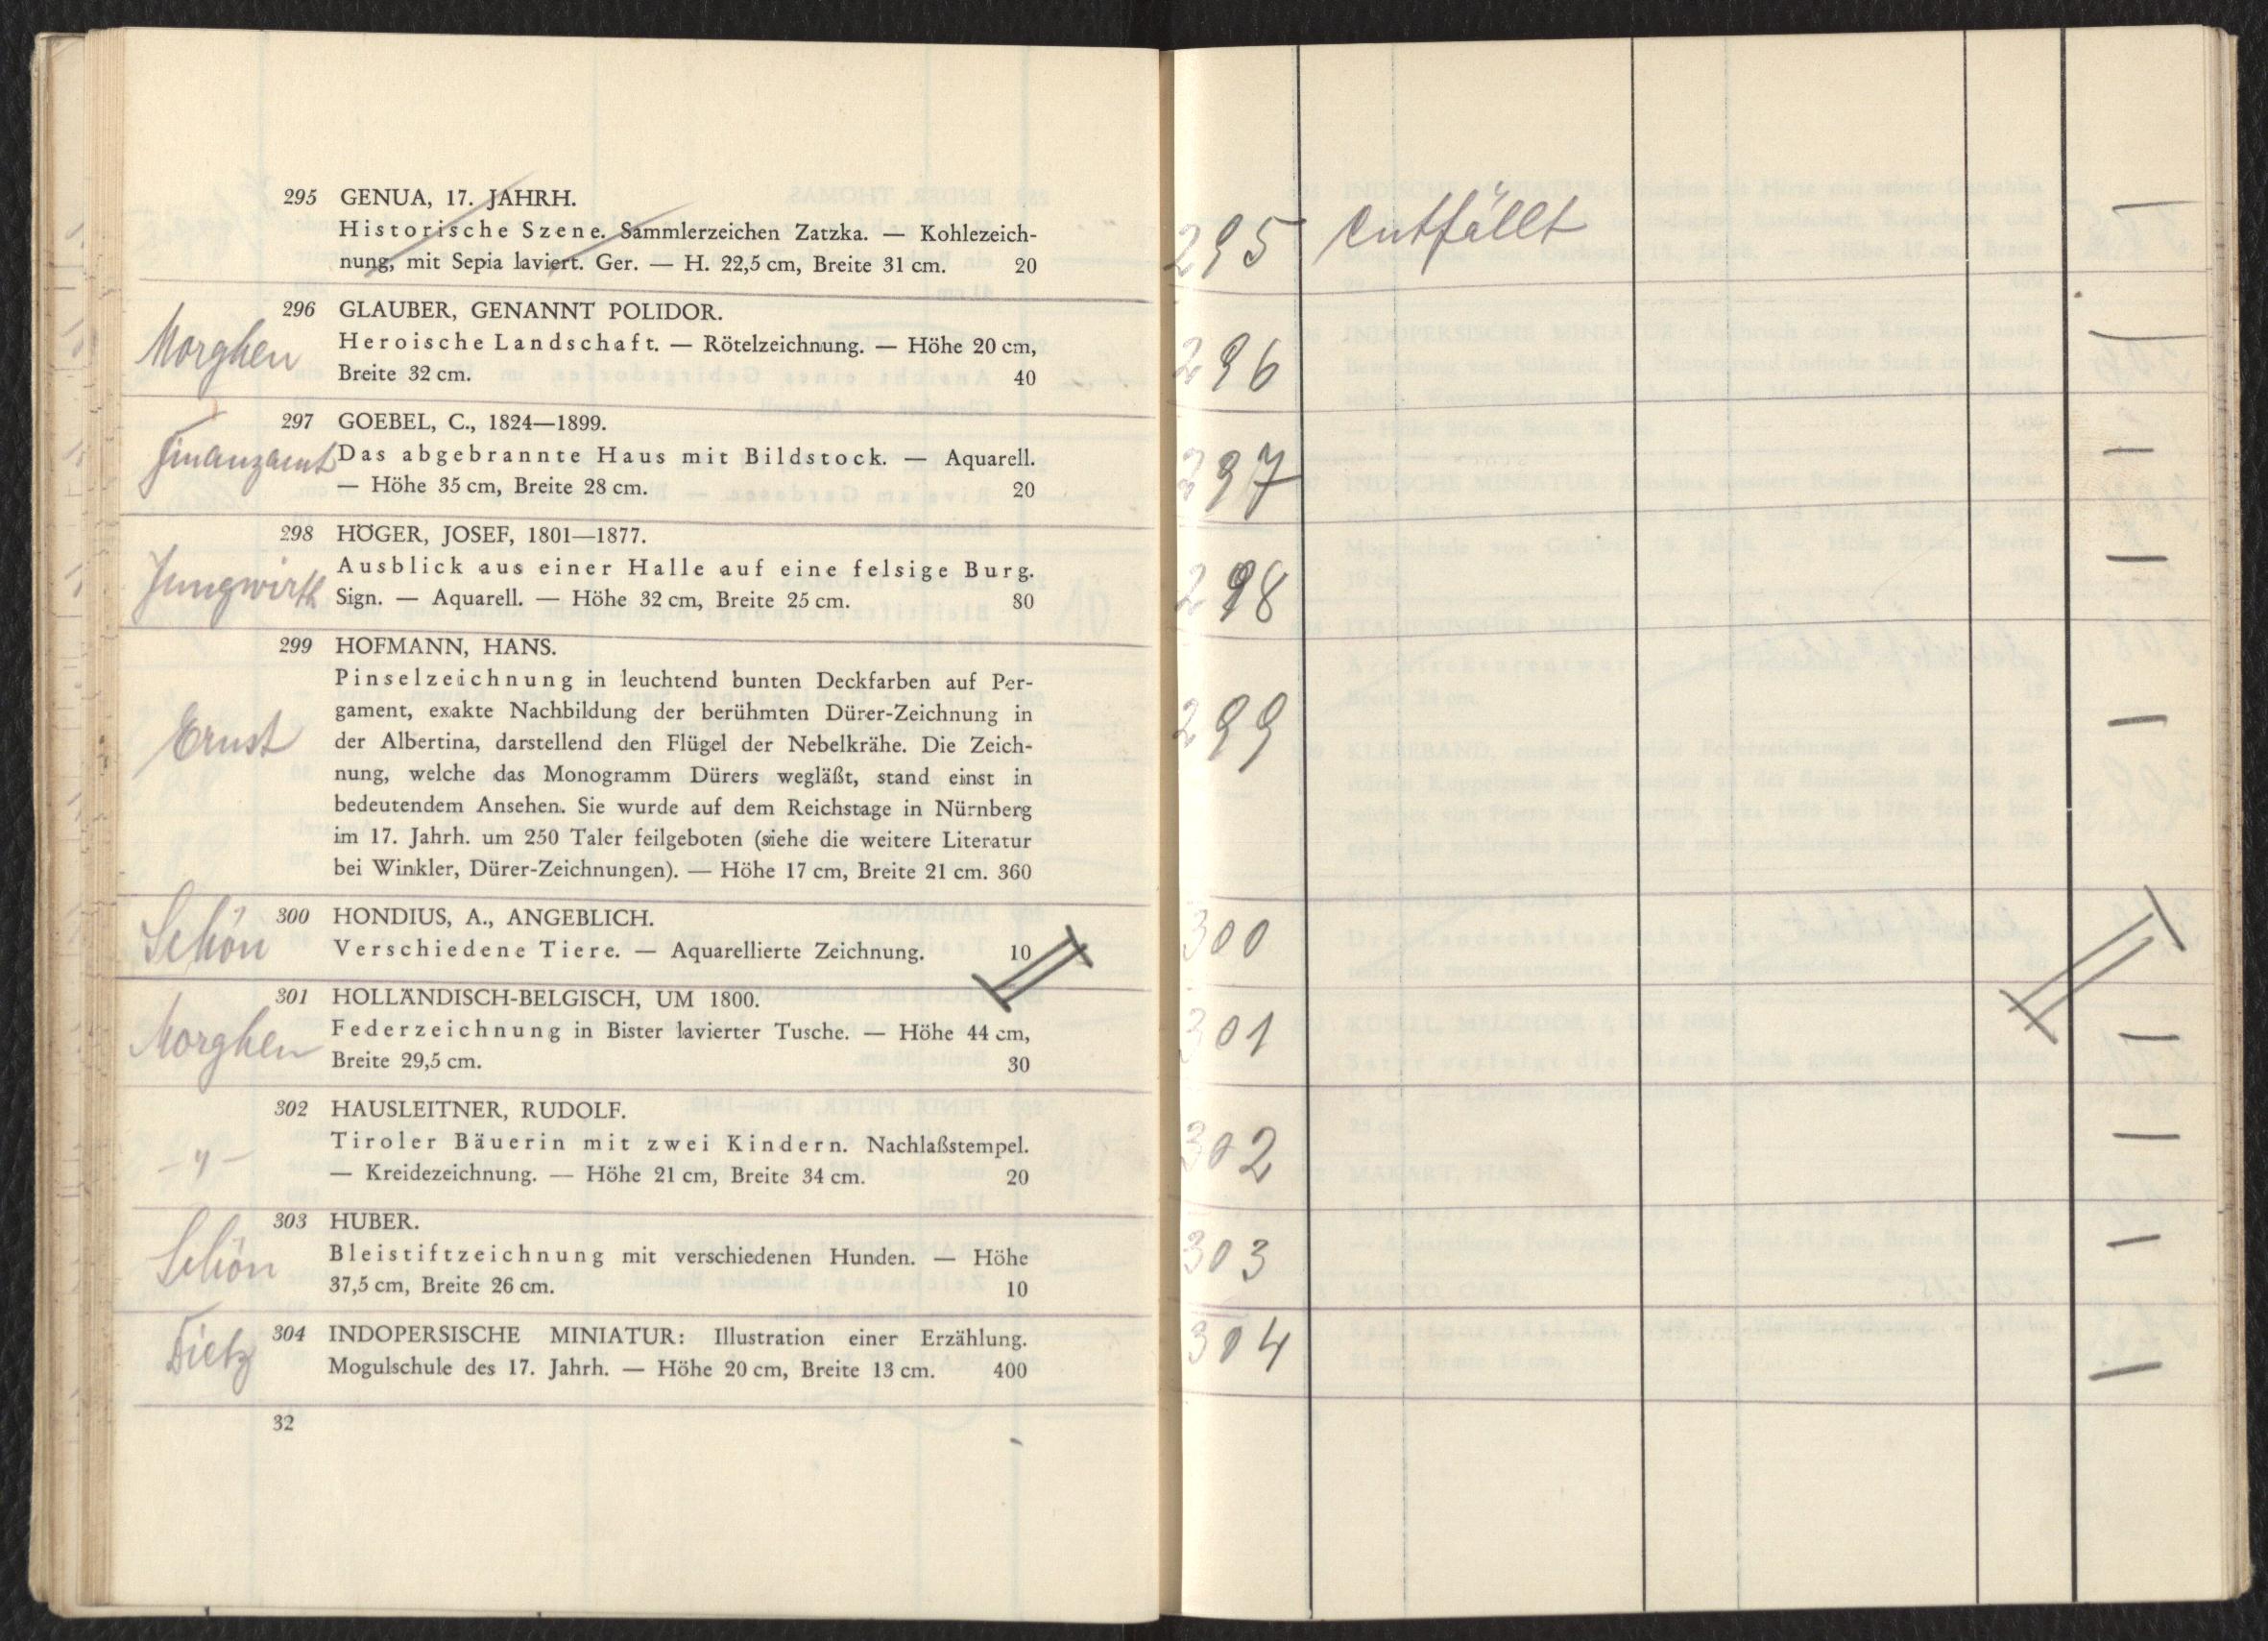 295 GENUA, 17. JAHRH.
Historische Szene. Sammlerzeichen Zatzka. — Kohlezeich-
nung, mit Sepia laviert. Ger. — H. 22,5 cm, Breite 31 cm. 20
296 GLAUBER, GENANNT POLIDOR.
Morghen
Heroische Landschaft. — Rötelzeichnung. — Höhe 20 cm,
Breite 32 cm. 40
297 GOEBEL, C., 1824—1899.
Finanzamt Das abgebrannte Haus mit Bildstock. — Aquarell.
— Höhe 35 cm, Breite 28 cm. 20
298 HÖGER, JOSEF, 1801—1877.
Ausblick aus einer Halle auf eine felsige Burg.
Jungwirth Sign. — Aquarell. — Höhe 32 cm, Breite 25 cm. 80
299 HOFMANN, HANS.
Pinselzeichnung in leuchtend bunten Deckfarben auf Per-
gament, exakte Nachbildung der berühmten Dürer-Zeichnung in
Ernst der Albertina, darstellend den Flügel der Nebelkrähe. Die Zeich-
nung, welche das Monogramm Dürers wegläßt, stand einst in
bedeutendem Ansehen. Sie wurde auf dem Reichstage in Nürnberg
im 17. Jahrh. um 250 Taler feilgeboten (siehe die weitere Literatur
bei Winkler, Dürer-Zeichnungen). — Höhe 17 cm, Breite 21 cm. 360
300 HONDIUS, A., ANGEBLICH.
Schön Verschiedene Tiere. — Aquarellierte Zeichnung. 10
301 HOLLÄNDISCH-BELGISCH, UM 1800.
Morghen Federzeichnung in Bister lavierter Tusche. — Höhe 44 cm,
Breite 29,5 cm. 30
302 HAUSLEITNER, RUDOLF.
Tiroler Bäuerin mit zwei Kindern. Nachlaßstempel.
— " — — Kreidezeichnung. — Höhe 21 cm, Breite 34 cm. 20
303 HUBER.
Schön Bleistiftzeichnung mit verschiedenen Hunden. — Höhe
37,5 cm, Breite 26 cm. 10
Dietz 304 INDOPERSISCHE MINIATUR: Illustration einer Erzählung.
Mogulschule des 17. Jahrh. — Höhe 20 cm, Breite 13 cm. 400
32
295 Entfällt —
296 —
297 —
298 —
299 —
300
301 —
302 —
303 —
304 —